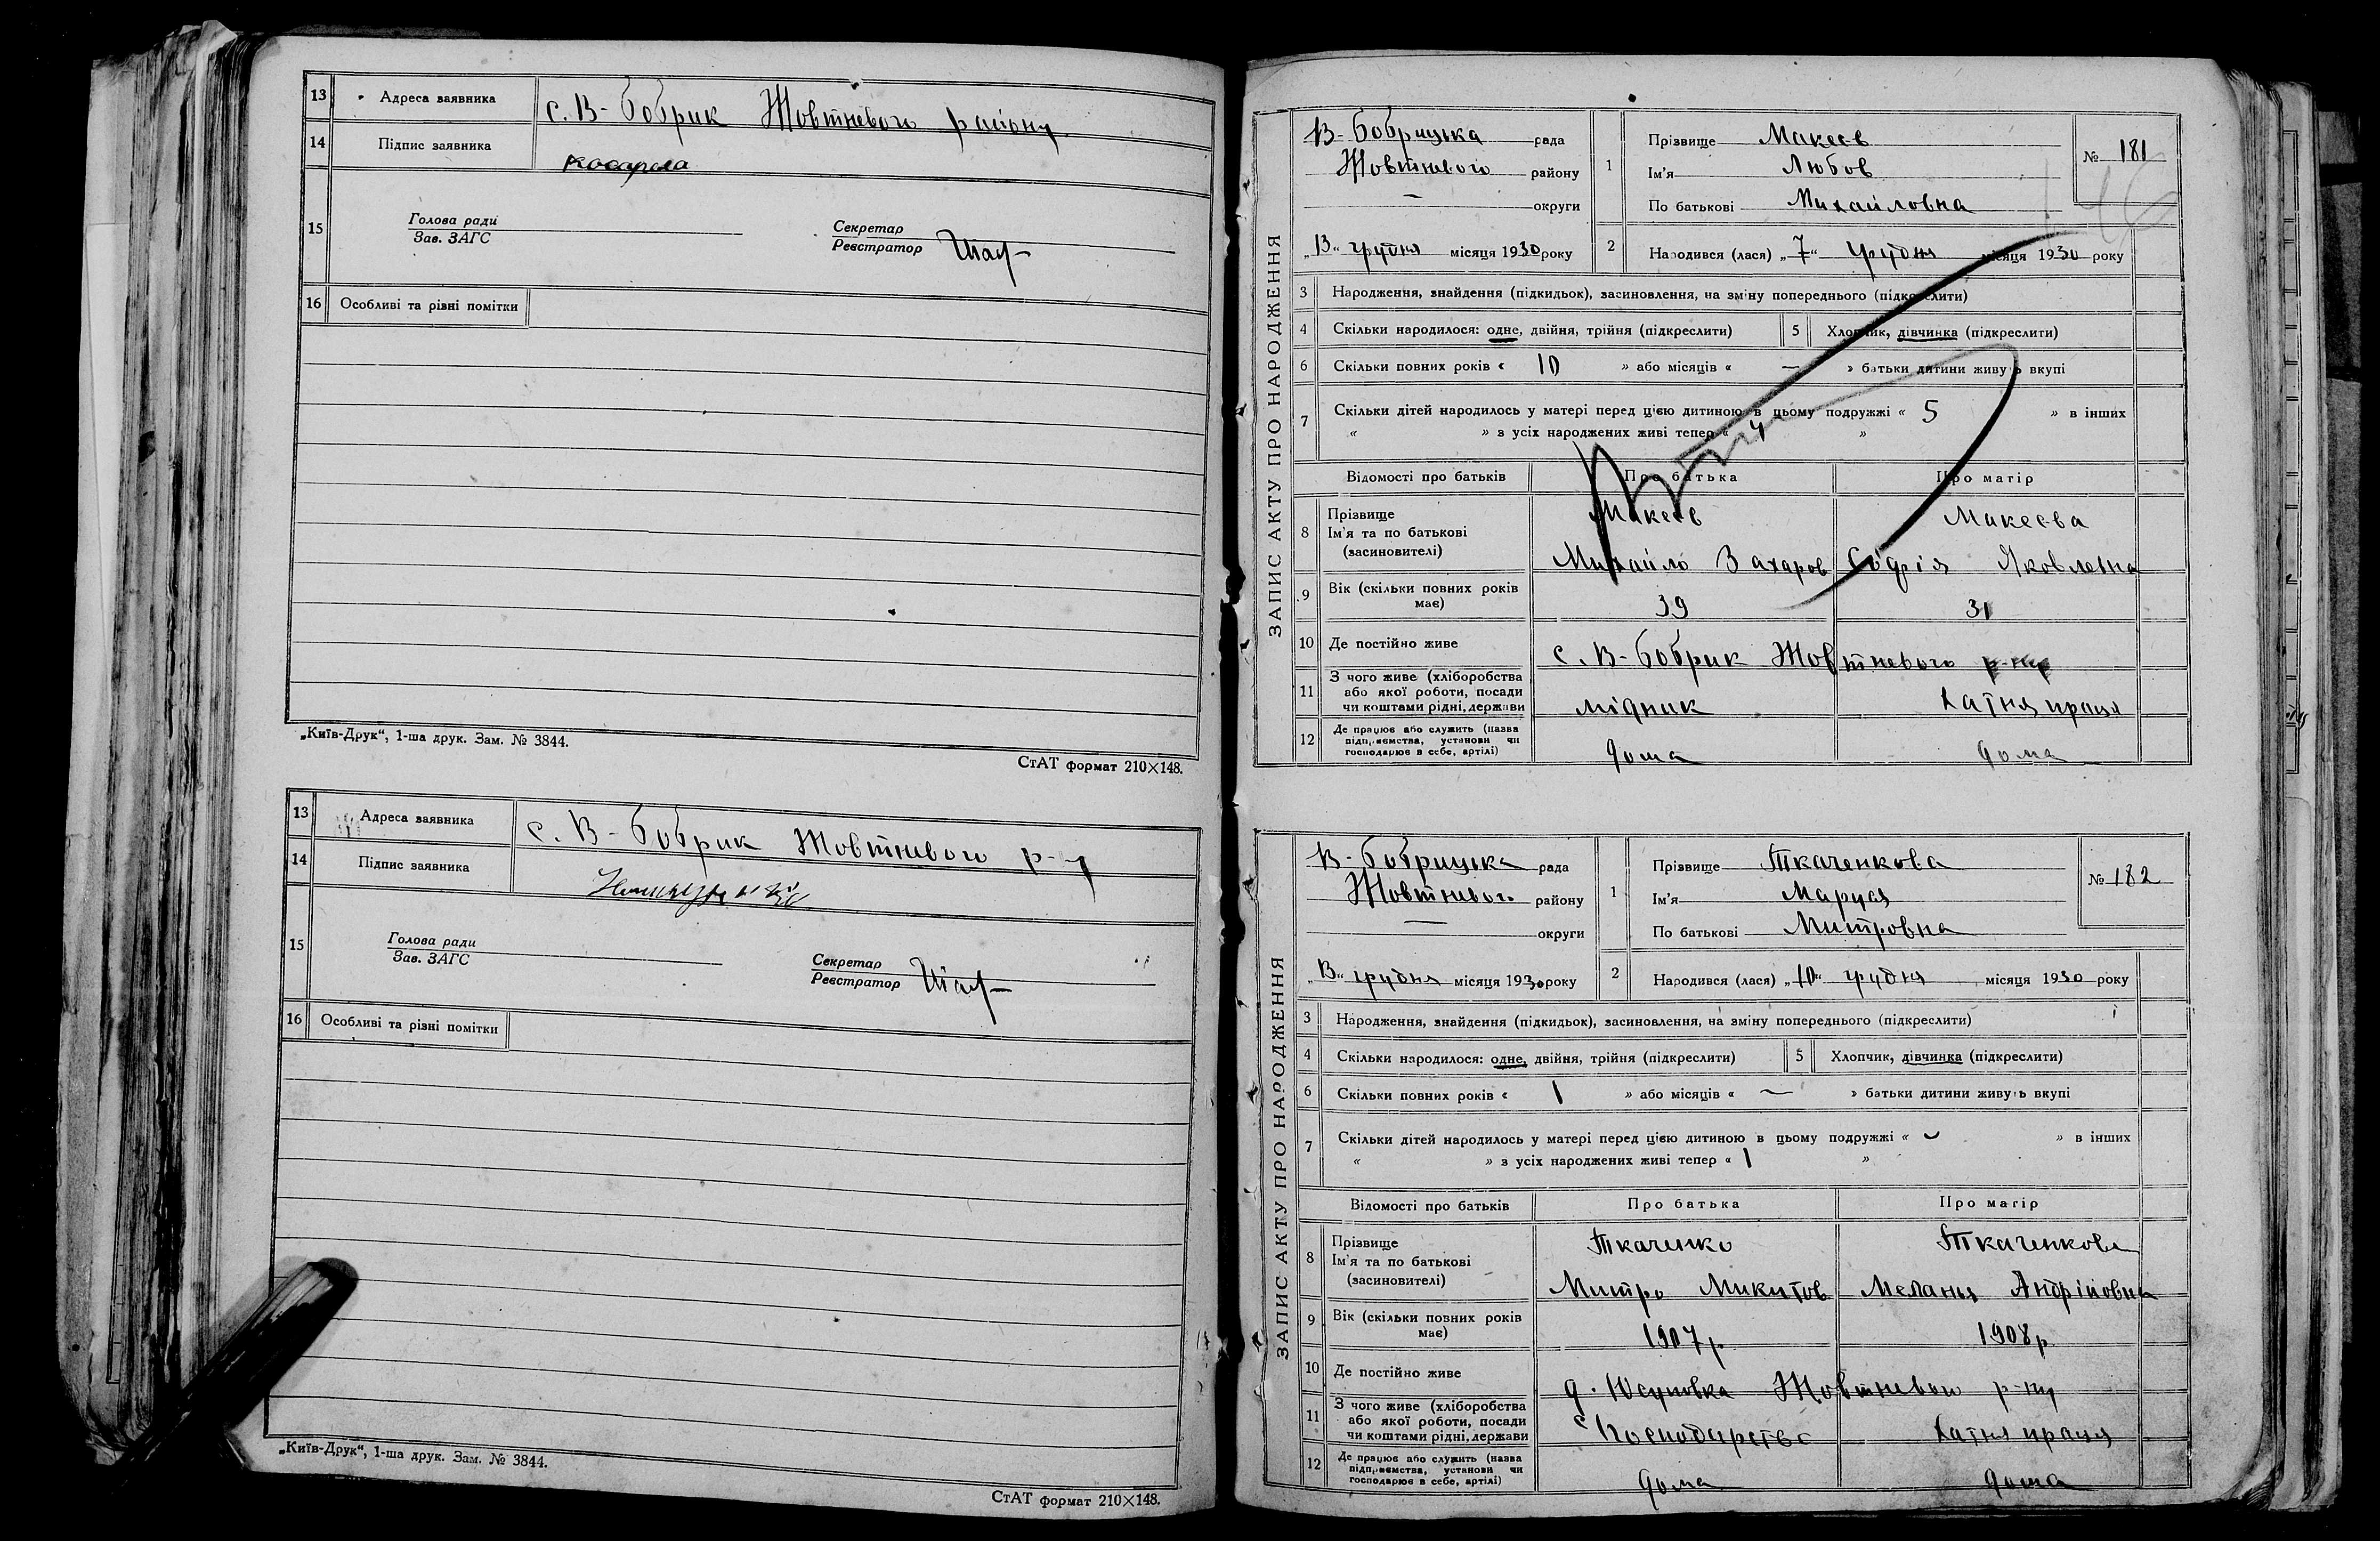 13 Адреса заявника с. В-Бобрик Жовтневого району
14 Підпис заявника
15 Голова ради
Зав. ЗАГС
Секретар
Реєстратор
16 Особливі та різні помітки
„Київ-Друк“, 1-ша друк. Зам. № 3844.
СтАТ формат 210×148.
13 Адреса заявника с. В-Бобрик Жовтневого р-у
14 Підпис заявника
15 Голова ради
Зав. ЗАГС
Секретар
Реєстратор
16 Особливі та різні помітки
„Київ-Друк“, 1-ша друк. Зам. № 3844.
СтАТ формат 210×148.
ЗАПИС АКТУ ПРО НАРОДЖЕННЯ
В-Бобрицька рада
Жовтневого району
— округи
„13“ грудня місяця 1930 року
1 Прізвище Макеєв
Ім'я Любов
По батькові Михайловна
№ 181
2 Народився (лася) „7“ грудня місяця 1930 року
3 Народження, знайдення (підкидьок), засиновлення, на зміну попереднього (підкреслити)
4 Скільки народилося: одне, двійня, трійня (підкреслити) 5 Хлопчик, дівчинка (підкреслити)
6 Скільки повних років « 10 » або місяців « — » батьки дитини живуть вкупі
7 Скільки дітей народилось у матері перед цією дитиною в цьому подружжі « 5 » в інших
« » з усіх народжених живі тепер « 4 »
Відомості про батьків Про батька Про матір
8 Прізвище Макеєв Макеєва
Ім'я та по батькові
(засиновителі) Михайло Захаров Софія Яковлевна
9 Вік (скільки повних років має) 39 31
10 Де постійно живе с. В-Бобрик Жовтневого р-ну
11 З чого живе (хліборобства
або якої роботи, посади
чи коштами рідні, держави мідник хатня праця
12 Де працює або служить (назва
підприємства, установи чи
господарює в себе, артілі) дома дома
ЗАПИС АКТУ ПРО НАРОДЖЕННЯ
В-Бобрицька рада
Жовтневого району
— округи
„13“ грудня місяця 1930 року
1 Прізвище Ткаченкова
Ім'я Маруся
По батькові Митровна
№ 182
2 Народився (лася) „10“ грудня місяця 1930 року
3 Народження, знайдення (підкидьок), засиновлення, на зміну попереднього (підкреслити)
4 Скільки народилося: одне, двійня, трійня (підкреслити) 5 Хлопчик, дівчинка (підкреслити)
6 Скільки повних років « 1 » або місяців « — » батьки дитини живуть вкупі
7 Скільки дітей народилось у матері перед цією дитиною в цьому подружжі « — » в інших
« » з усіх народжених живі тепер « 1 »
Відомості про батьків Про батька Про матір
8 Прізвище Ткаченко Ткаченкова
Ім'я та по батькові
(засиновителі) Митро Микитов Меланья Андрійовна
9 Вік (скільки повних років має) 1907 р. 1908 р
10 Де постійно живе д. Юсуповка Жовтневого р-ну
11 З чого живе (хліборобства
або якої роботи, посади
чи коштами рідні, держави с господарство хатня праця
12 Де працює або служить (назва
підприємства, установи чи
господарює в себе, артілі) дома дома